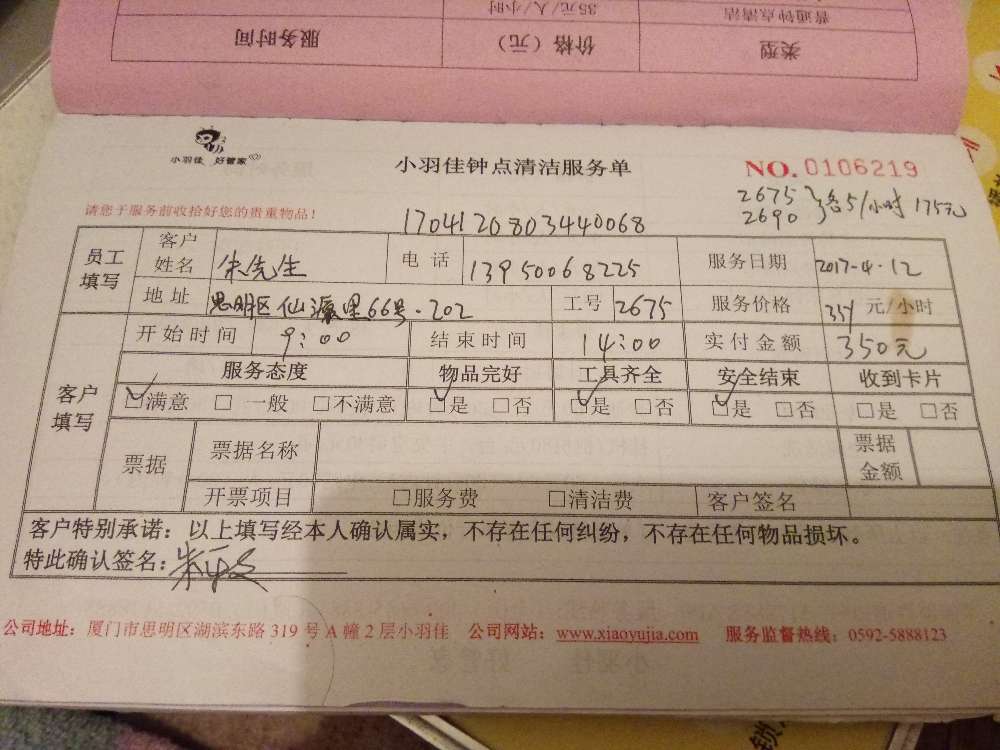 普通钟点清洁 35元/人/小时
类型 价格（元） 服务时间
小羽佳 好管家
小羽佳钟点清洁服务单
NO.0106219
请您于服务前收拾好您的贵重物品！
17041208034440068
2675
2690 各5/小时 175元
员工填写
客户姓名 朱先生 电话 13950068225 服务日期 2017-4-12
地址 思明区仙源里66号-202 工号 2675 服务价格 35 元/小时
客户填写
开始时间 9:00 结束时间 14:00 实付金额 350元
服务态度 物品完好 工具齐全 安全结束 收到卡片
☑满意 □一般 □不满意 ☑是 □否 ☑是 □否 ☑是 □否 □是 □否
票据 票据名称 票据金额
开票项目 □服务费 □清洁费 客户签名
客户特别承诺：以上填写经本人确认属实，不存在任何纠纷，不存在任何物品损坏。
特此确认签名：
公司地址：厦门市思明区湖滨东路 319 号 A 幢 2 层小羽佳 公司网站：www.xiaoyujia.com 服务监督热线：0592-5888123